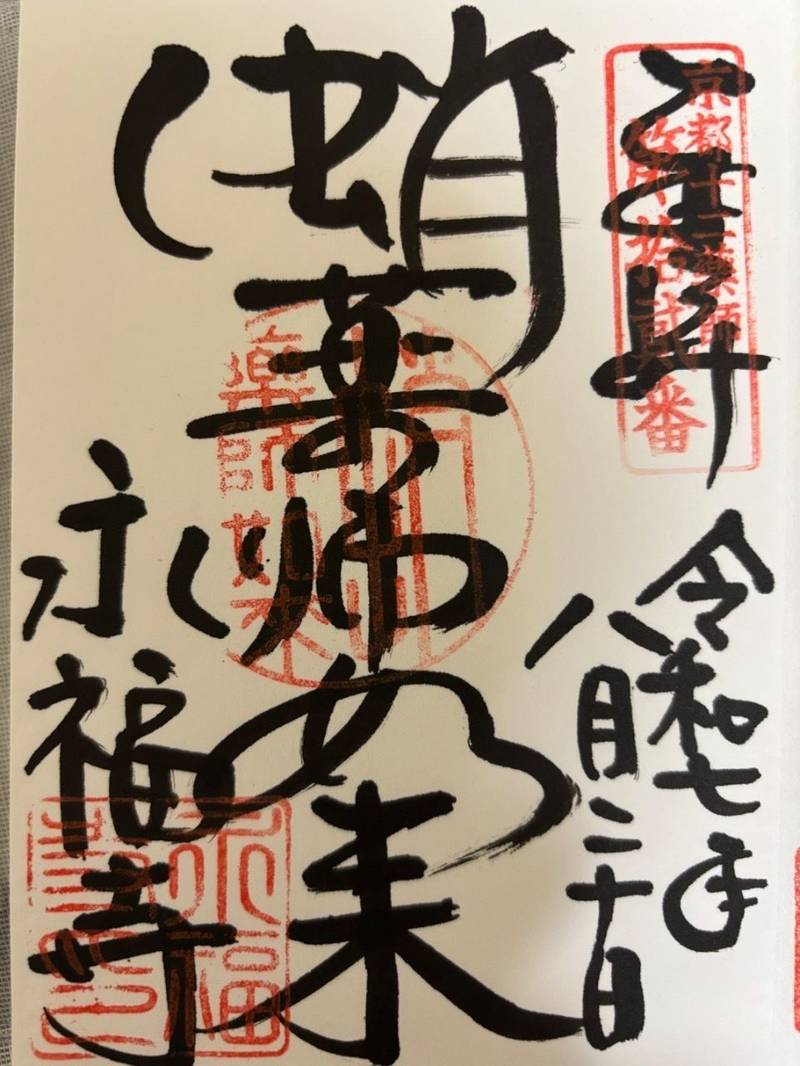 奉拝
京都十二薬師
第拾貳番
令和七年
八月二十日
蛸薬師如来
薬師如来
永福寺
永福
寺印